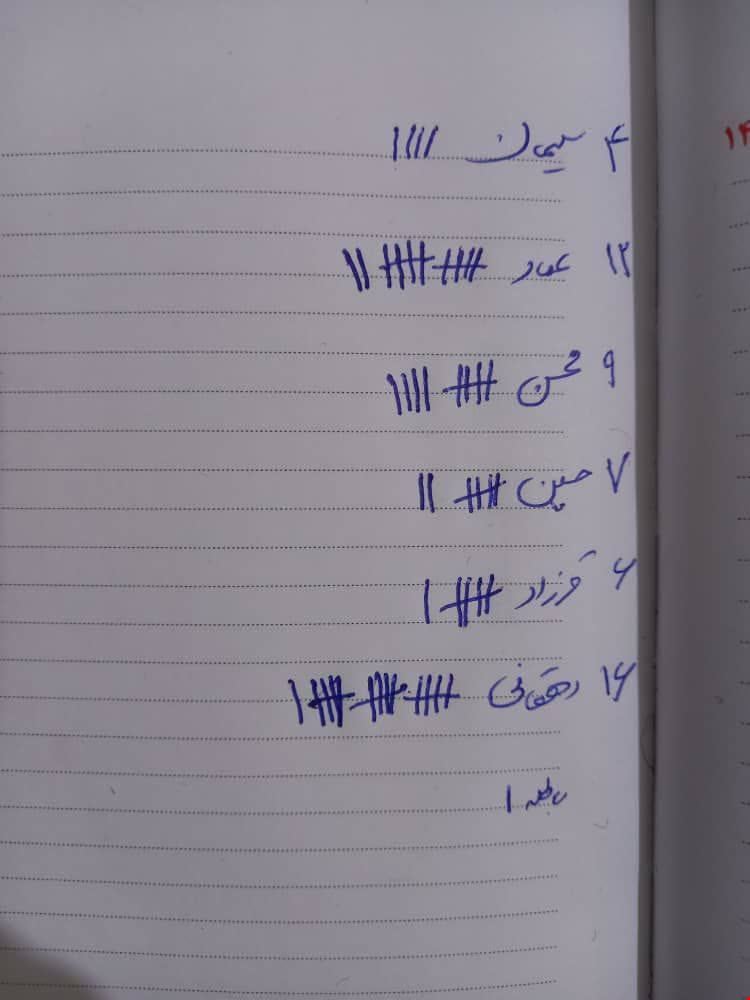 ۴ سلیمان ||||
۱۲ عماد |||| |||| ||
۹ محسن |||| ||||
۷ حسین |||| ||
۶ فرزاد |||| |
۱۶ دهقانی |||| |||| |||| |
باطله |
۱۴